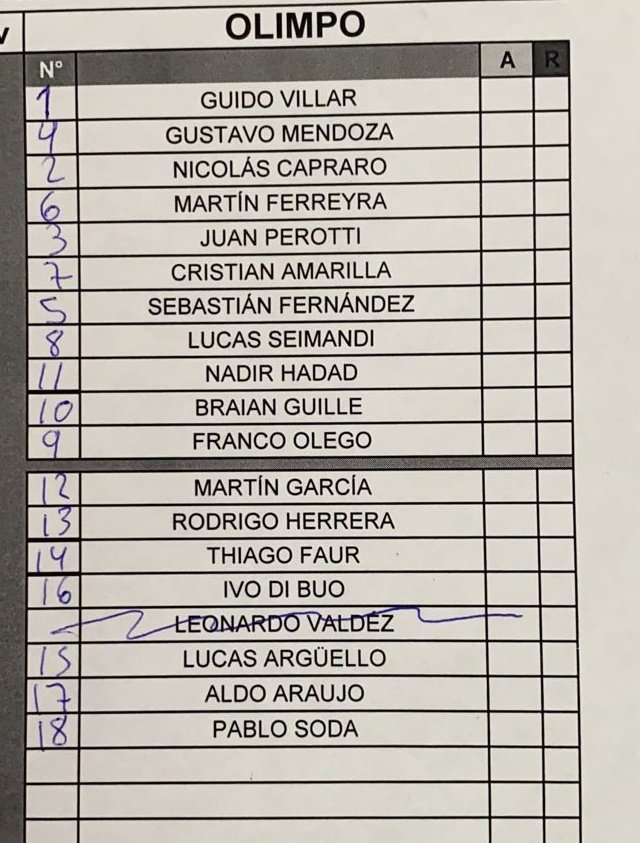 OLIMPO
Nº A R
1 GUIDO VILLAR
4 GUSTAVO MENDOZA
2 NICOLÁS CAPRARO
6 MARTÍN FERREYRA
3 JUAN PEROTTI
7 CRISTIAN AMARILLA
5 SEBASTIÁN FERNÁNDEZ
8 LUCAS SEIMANDI
11 NADIR HADAD
10 BRAIAN GUILLE
9 FRANCO OLEGO
12 MARTÍN GARCÍA
13 RODRIGO HERRERA
14 THIAGO FAUR
16 IVO DI BUO
LEONARDO VALDEZ
15 LUCAS ARGÜELLO
17 ALDO ARAUJO
18 PABLO SODA